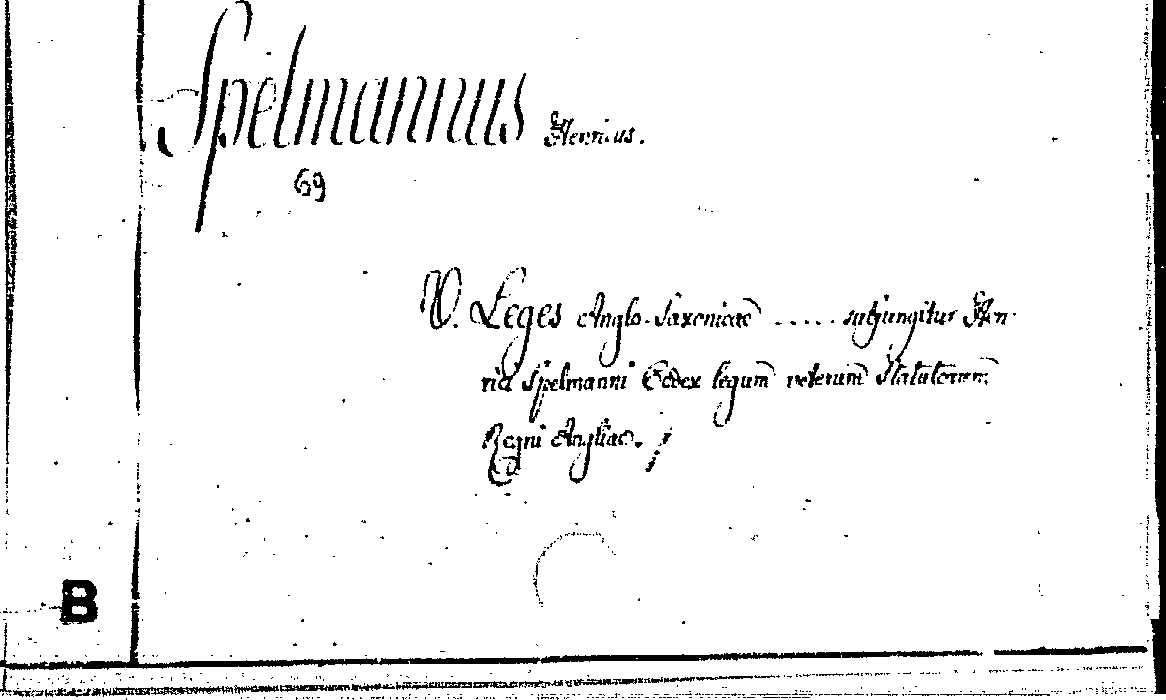 Spelmannus Henricus.
69
V. Leges Anglo-Saxonicae ..... subjungitur Hen-
rici Spelmanni Codex legum veterum Statutorum
Regni Angliae. /
B